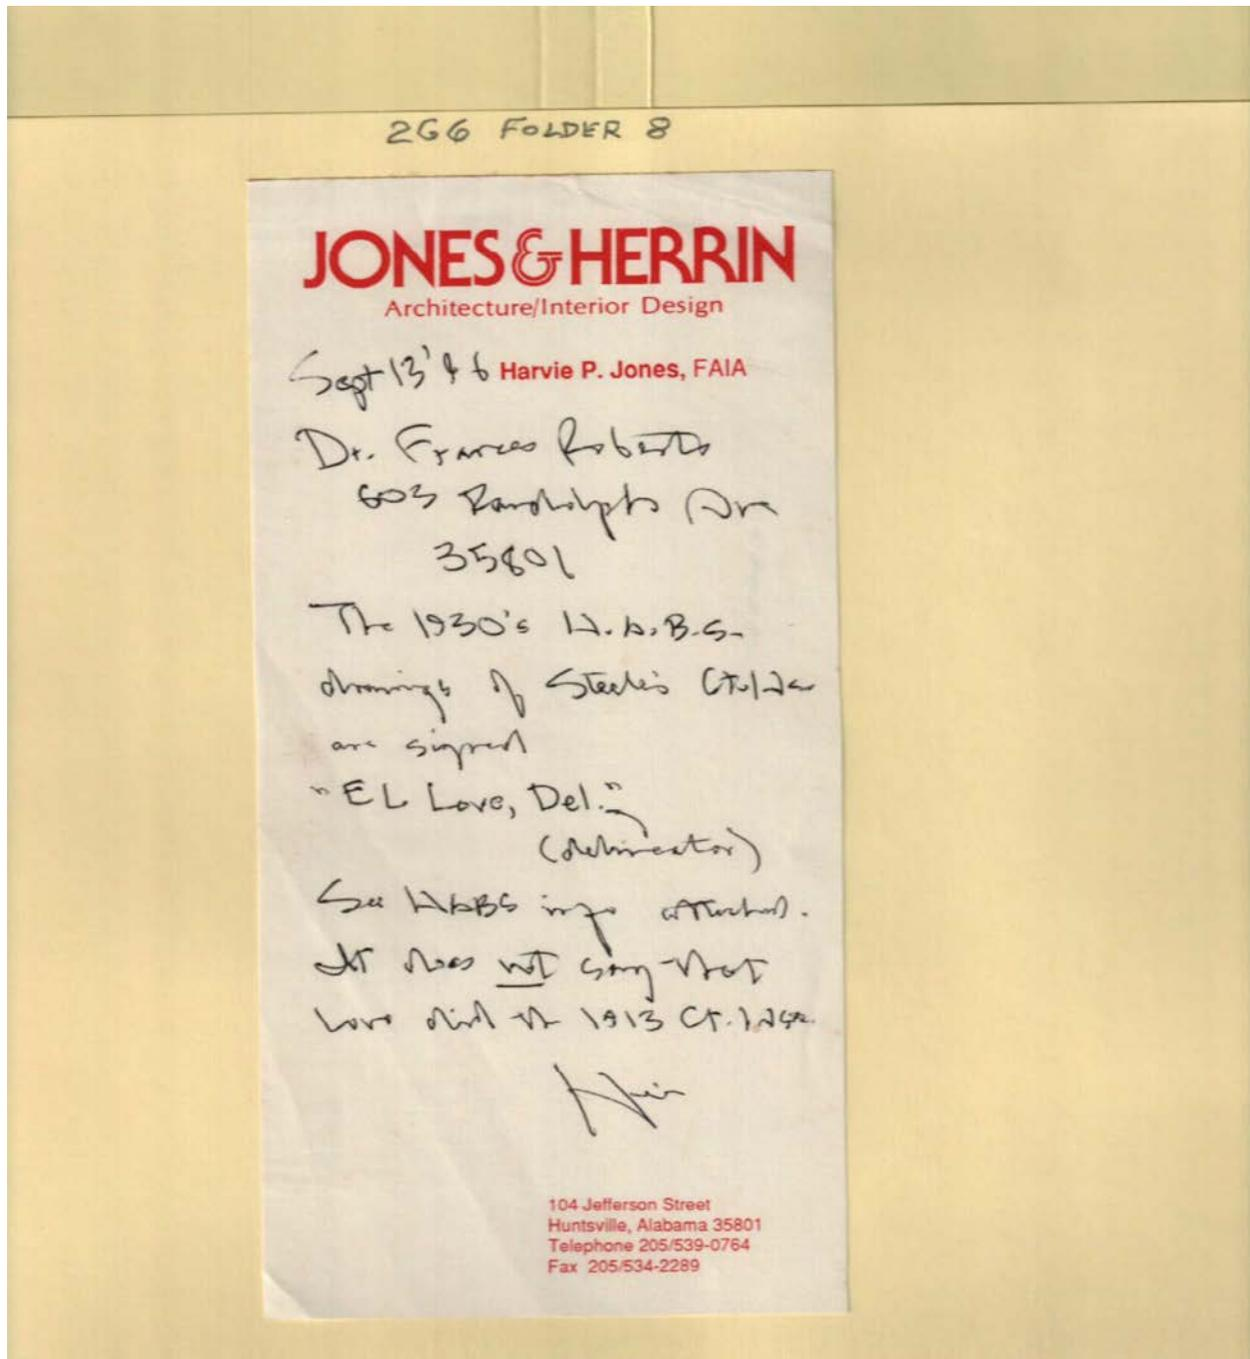 2G6 FOLDER 8
JONES & HERRIN
Architecture/Interior Design
Sept 13 '96 Harvie P. Jones, FAIA
Dr. Frances Roberts
603 Randolph Ave
35801
The 1930's H.A.B.S.
drawings of Steele's CtHse
are signed
"EL Love, Del."
(delineator)
See HABS info attached.
It does not say that
Love did the 1913 Ct. Hse.
104 Jefferson Street
Huntsville, Alabama 35801
Telephone 205/539-0764
Fax 205/534-2289